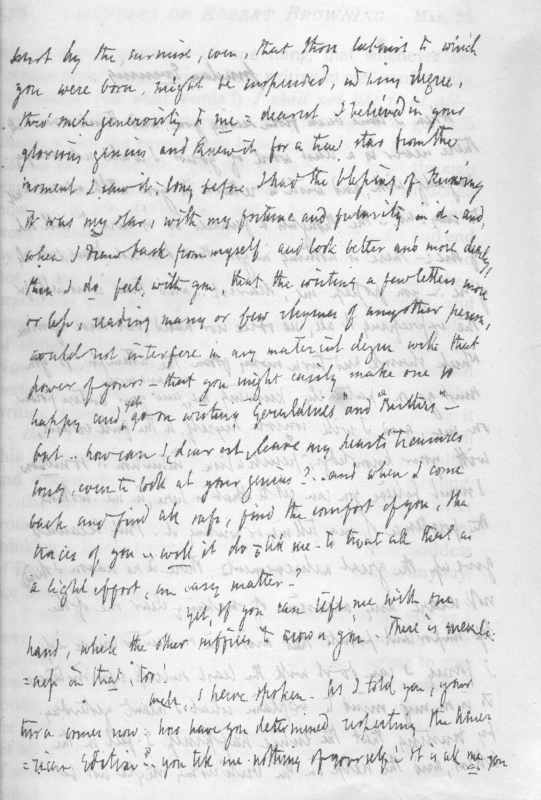 hurt by the surmise, even, that those labours to which
you were born, might be suspended, in any degree,
thro' such generosity to me - dearest I believed in your
glorious genius and knew it for a true star from the
moment I saw it; long before I had the blessing of knowing
it was my star, with my fortune and futurity in it - and,
when I draw back from myself and look better and more clearly,
then I do feel, with you, that the writing a few letters more
or less, reading many or few rhymes of any other person,
would not interfere in any material degree with that
power of yours - that you might easily make one so
happy and yet go on writing "Geraldines" and "Berthas" -
but .. how can I, dearest, leave my heart's treasures
long, even to look at your genius? .. and when I come
back and find all safe, find the comfort of you, the
traces of you .. will it do - tell me - to trust all that as
a light effort, an easy matter?
Yet, if you can lift me with one
hand, while the other suffices to crown you There is queenli-
=ness in that, too!
Well .. I have spoken. As I told you, your
turn comes now - how have you determined respecting the Amer
=ican Edition? - you tell me nothing of yourself! It is all me you